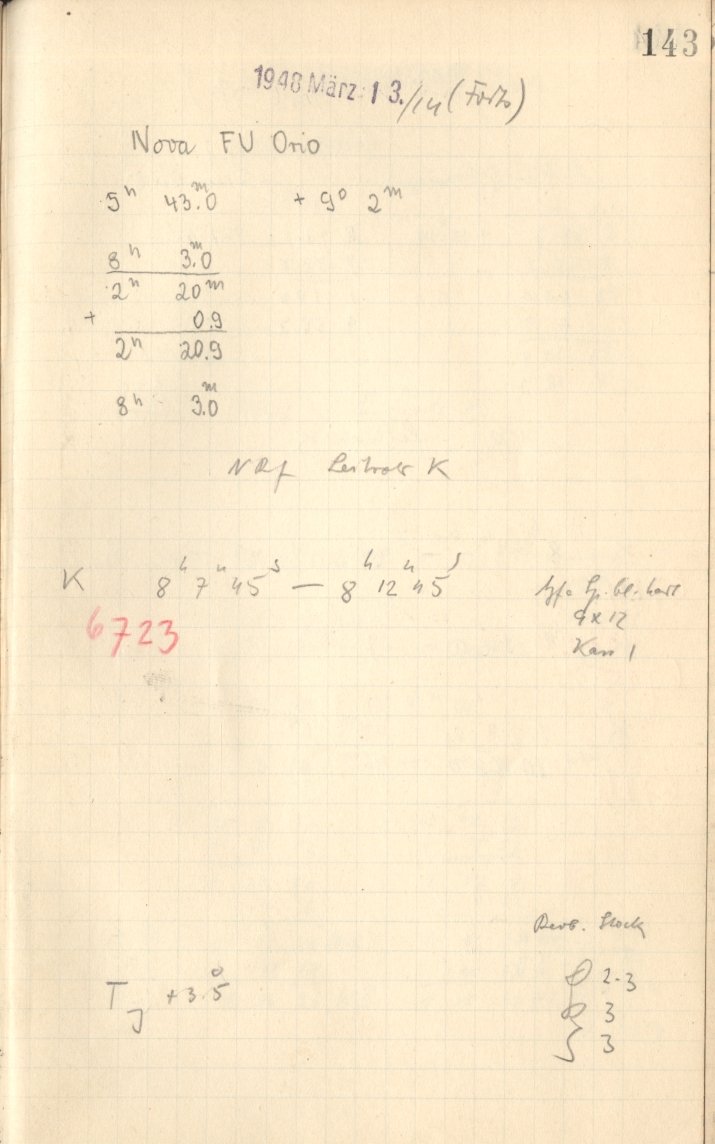 143
1948 März 13./14 (Forts)
Nova FU Orio
5h 43.m0 + 9° 2m
8h 3.m0
2h 20m
+ 0.9
2h 20.9
8h 3.m0
NRf Leitrohr K
K 8h 7m 45s — 8h 12m 45s
Agfa Sp. bl. hart
6723
9x12
Kass 1
Beob. Stock
TJ +3.°5
2-3
3
3